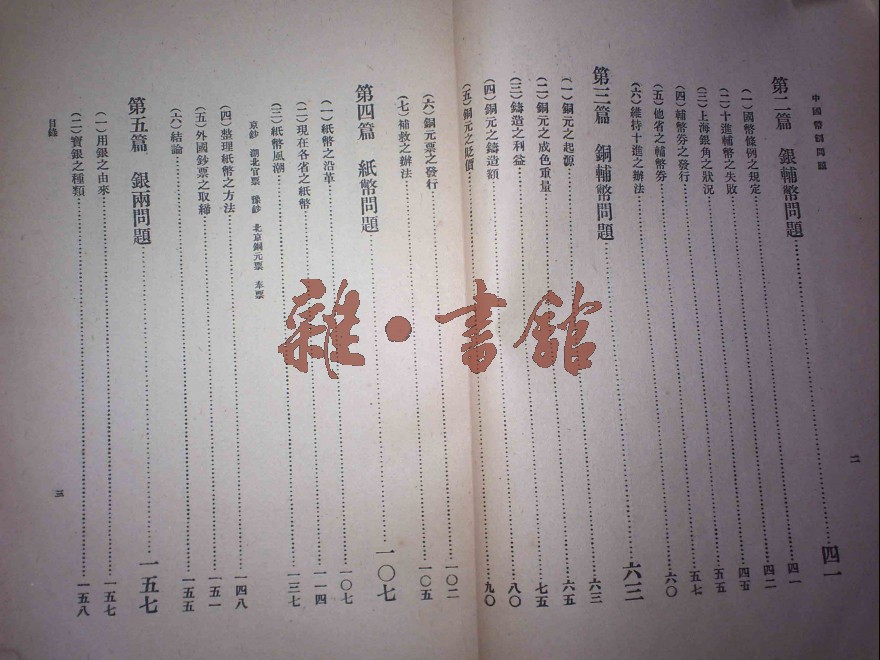 中國幣制問題
第二篇 銀輔幣問題 四一
(一)國幣條例之規定 四一
(二)十進輔幣之失敗 四二
(三)上海銀角之狀況 四五
(四)輔幣券之發行 五五
(五)他省之輔幣券 五七
(六)維持十進之辦法 六〇
第三篇 銅輔幣問題 六三
(一)銅元之起源 六三
(二)銅元之成色重量 六五
(三)鑄造之利益 七五
(四)銅元之鑄造額 八〇
(五)銅元之貶價 九〇
二
(六)銅元票之發行 一〇二
(七)補救之辦法 一〇五
第四篇 紙幣問題 一〇七
(一)紙幣之沿革 一〇七
(二)現在各省之紙幣 一一四
(三)紙幣風潮 一三七
京鈔 湖北官票 豫鈔 北京銅元票 奉票
(四)整理紙幣之方法 一四八
(五)外國鈔票之取締 一五一
(六)結論 一五五
第五篇 銀兩問題 一五七
(一)用銀之由來 一五七
(二)寶銀之種類 一五八
目錄
三
雜·書館